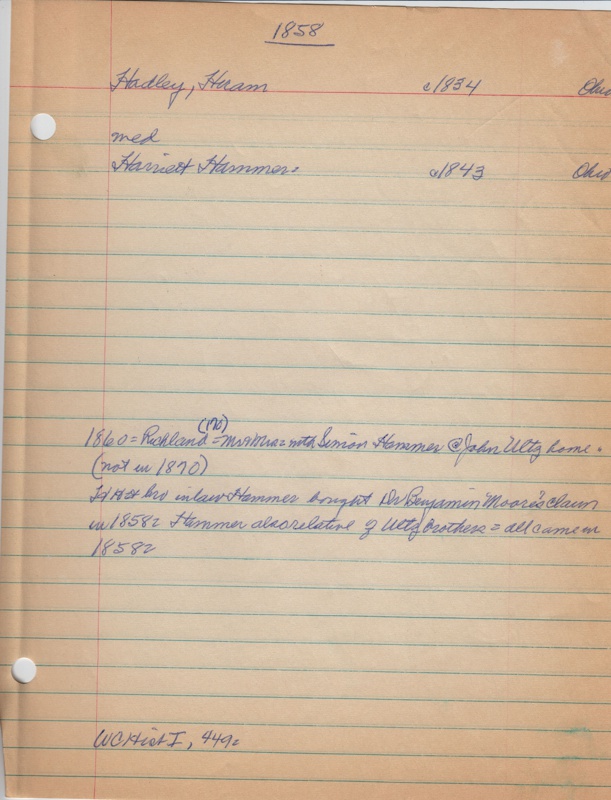 1858
Hadley, Hiram c1834 Ohio
med
Harriett Hammer= c1843 Ohio
(170)
1860= Richland = Mr+Mrs= with Simon Hammer @ John Ultz home.
(not in 1870)
bro inlaw Hammer bought Dr Benjamin Moore's claim
in 1858= Hammer also relative of Ultz brothers = all came in
1858=
WC Hist I, 449=